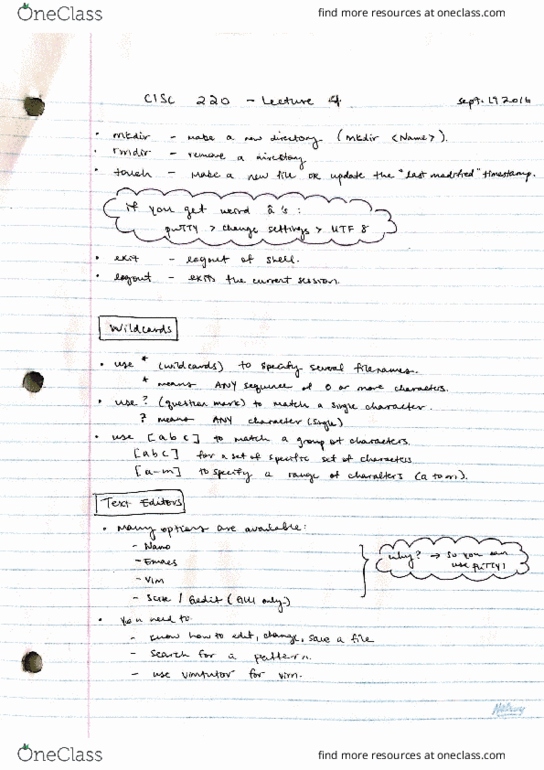 OneClass
find more resources at oneclass.com
CISC 220 - Lecture 4
sept. 19 2016
• mkdir - make a new directory (mkdir <Name>).
• rmdir - remove a directory
• touch - make a new file OR update the "last modified" timestamp.
if you get weird â's:
puTTY > change settings > UTF 8
• exit - logout of shell.
• logout - exits the current session.
Wildcards
• use * (wildcards) to specify several filenames.
* means ANY sequence of 0 or more characters.
• use ? (question mark) to match a single character.
? means ANY character (single)
• use [abc] to match a group of characters.
[abc] for a set of specific set of characters
[a-m] to specify a range of characters (a to m).
Text Editors
• Many options are available:
- Nano
- Emacs
- Vim
- / Gedit (GUI only.)
why? → so you can
use puTTY!
• You need to
- know how to edit, change, save a file
- search for a pattern.
- use vimtutor for vim.
OneClass
find more resources at oneclass.com